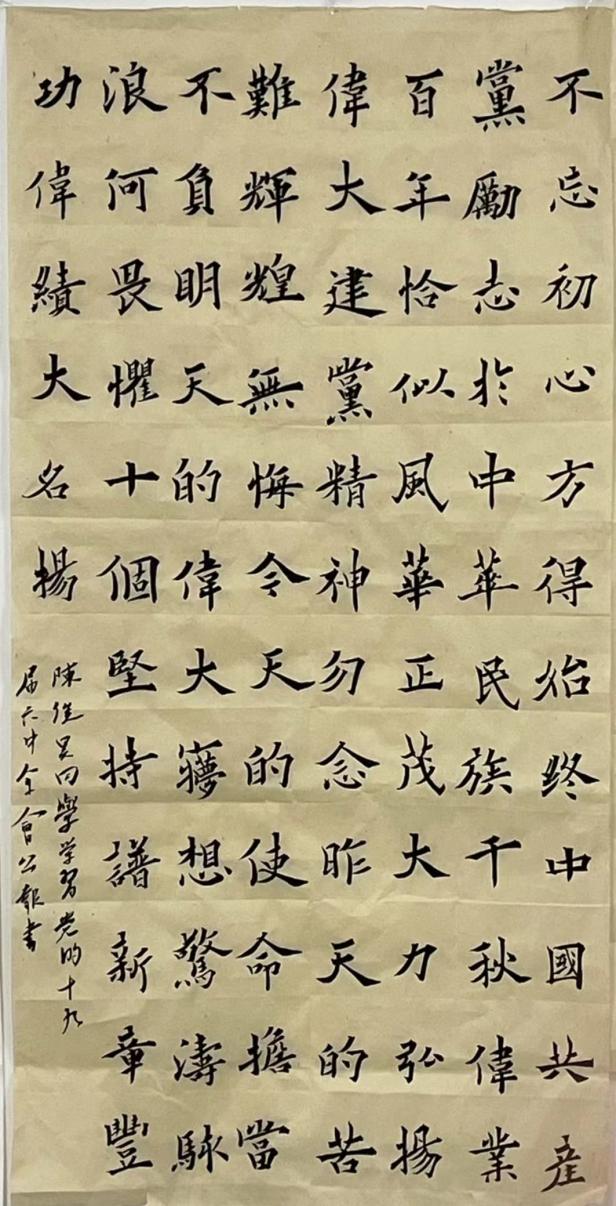 不忘初心方得始终中國共產
黨勵志於中華民族千秋偉業
百年恰似風華正茂大力弘揚
偉大建黨精神勿念昨天的苦
難輝煌無悔今天的使命擔當
不負明天的偉大夢想驚濤駭
浪何畏懼十個堅持譜新章豐
功偉績大名揚
陳同學学習党的十九
届六中全會公報書